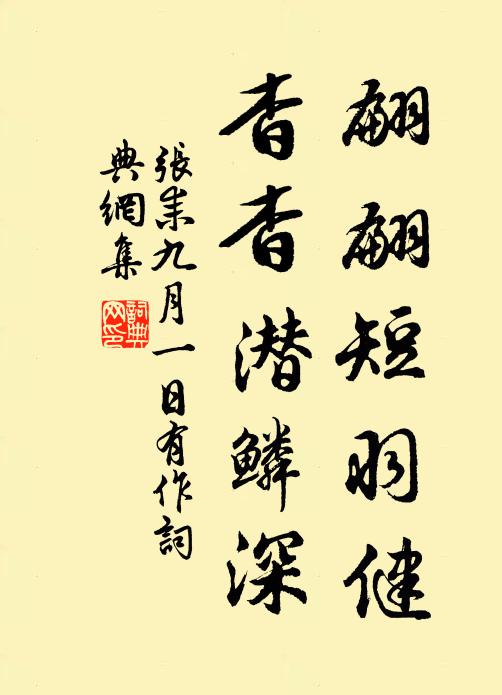 翩翩短羽健
杳杳潜鱗深
張耒九月一日有作詞
典網集
詞典
网印